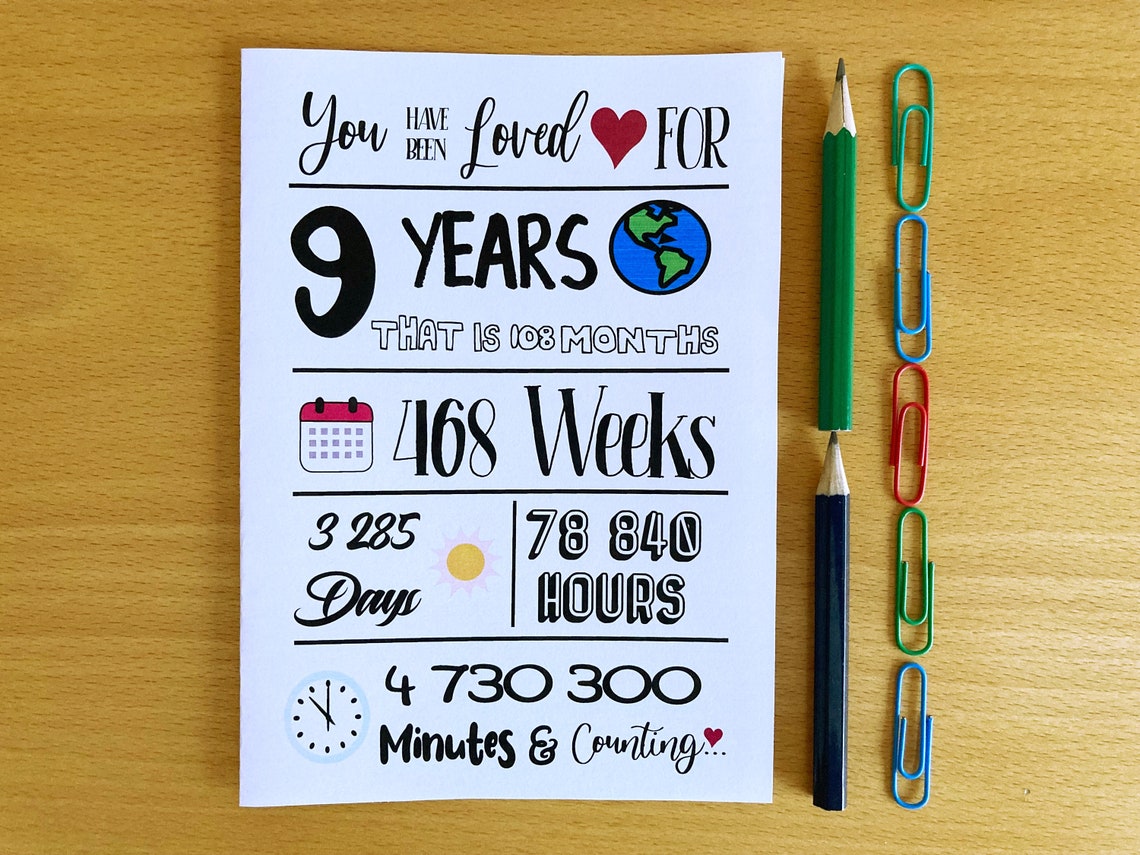 You HAVE BEEN Loved FOR
9 YEARS
THAT IS 108 MONTHS
468 Weeks
3 285
Days
78 840
HOURS
4 730 300
Minutes & Counting...